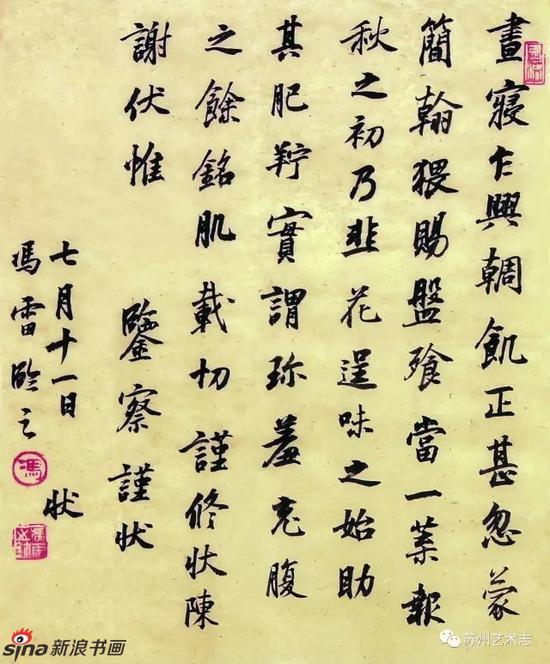 晝寢乍興輖飢正甚忽蒙
簡翰猥賜盤飧當一葉報
秋之初乃韭花逞味之始助
其肥羜實謂珎羞充腹
之餘銘肌載切謹修狀陳
謝伏惟 鑒察謹狀
七月十一日 狀
馮雷臨之
馮
sina新浪书画
苏州艺术志